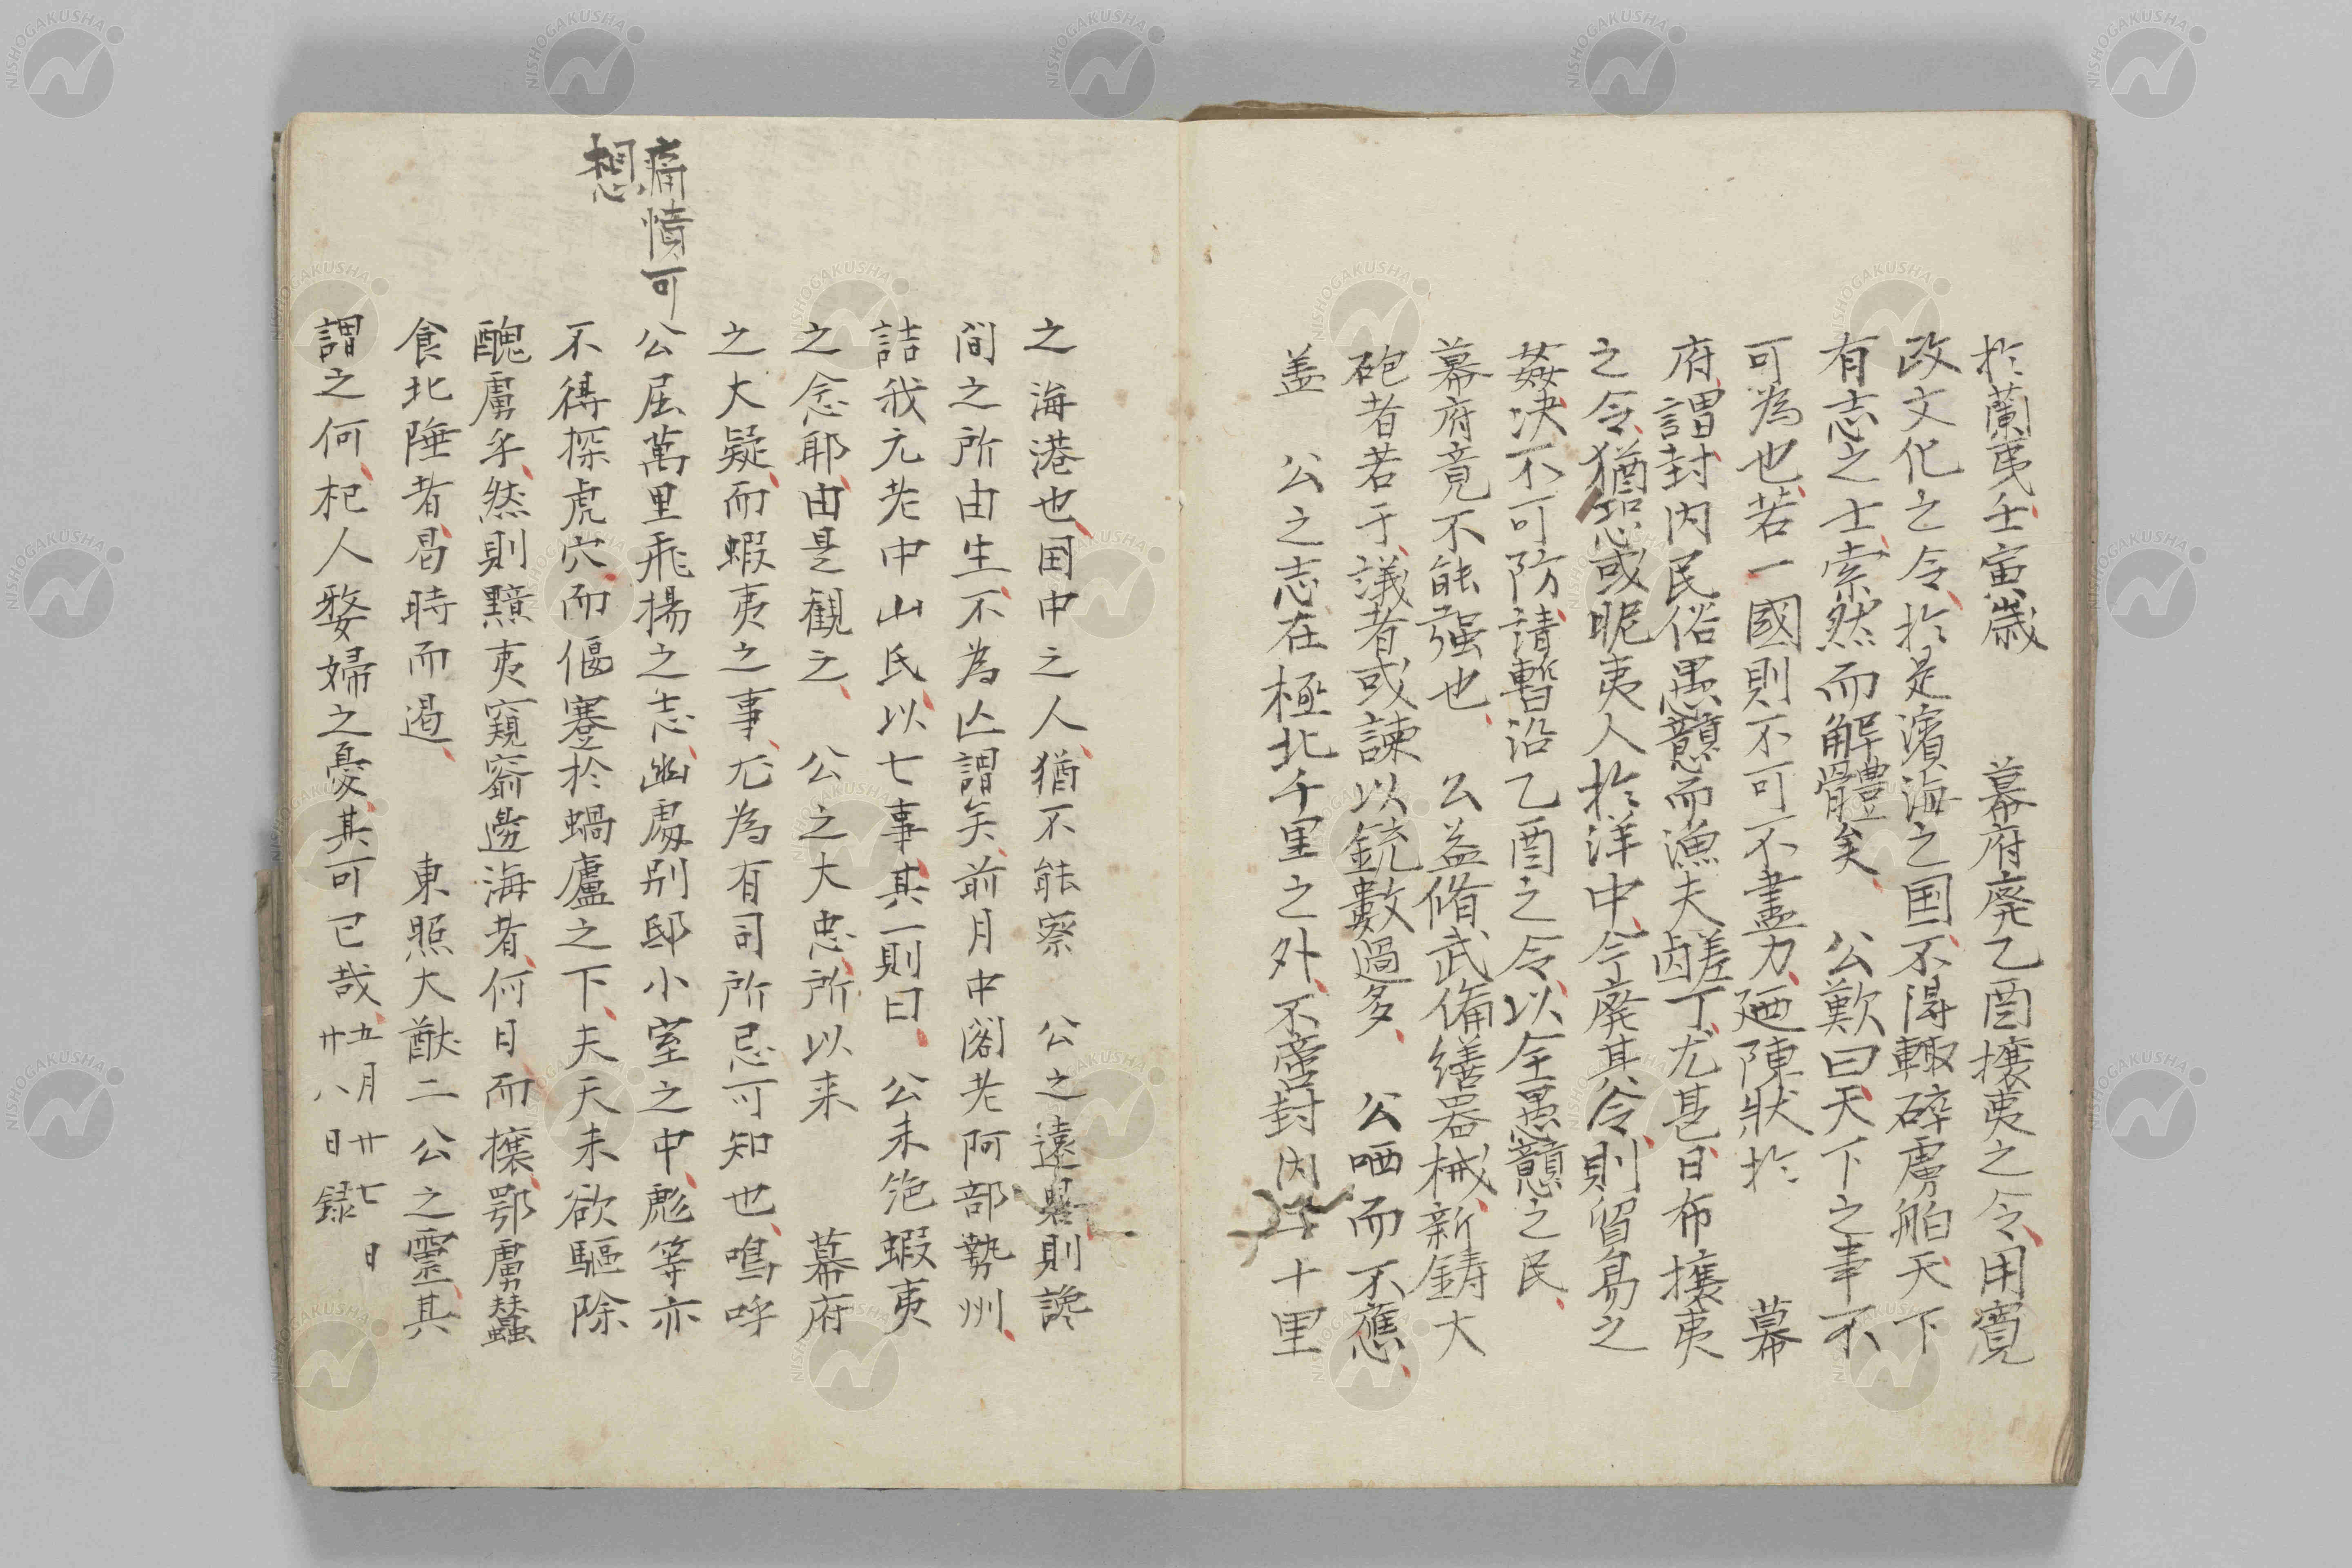 於蘭夷壬寅歳　幕府廃乙酉攘夷之令用寛
政文化之令於是濱海之国不得輙碎虜舶天下
有志之士索然而解體矣　公歎曰天下之事不
可為也若一國則不可不盡力廼陳狀於　幕
府謂封内民俗愚戇而漁夫醝丁尤甚日布攘夷
之令猶恐或昵夷人於洋中今廃其令則貿易之
姦决不可防請暫沿乙酉之令以全愚戇之民
幕府竟不能强也　公益脩武備繕器械新鋳大
砲者若干議者或諫以銃數過多　公哂而不應
盖　公之志在極北千里之外不啻封内 十里
之海港也国中之人猶不能察　公之遠畧則讒
間之所由生不為亾謂矣前月中閣老阿部勢州
詰我元老中山氏以七事其一則曰　公未忘蝦夷
之念耶由是觀之　公之大忠所以来　幕府
之大疑而蝦夷之事尤為有司所忌可知也嗚呼
公屈萬里飛揚之志幽處別邸小室之中彪等亦
不得探虎穴而偃蹇於蝸廬之下夫天未欲驅除
醜虜乎然則黠夷窺窬邊海者何日而攘鄂虜蠶
食北陲者曷時而遏　東照大猷二公之靈其
謂之何杞人嫠婦之憂其可已哉五月廿七日
廿八日録
痛憤可
想
NISHOGAKUSHA